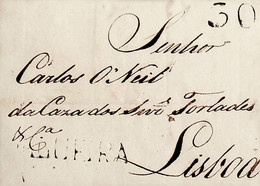 30
Senhor
Carlos O'Neil
da Caza dos Snr.s Torlades
& C.a
Lisboa